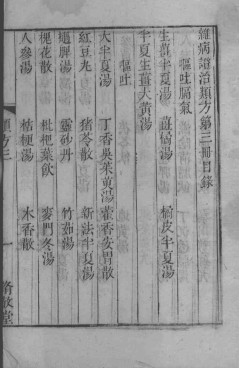 雜病證治類方第三冊目錄
嘔吐膈氣
生薑半夏湯 薑橘湯 橘皮半夏湯
半夏生薑大黃湯
嘔吐
大半夏湯 丁香吳茱萸湯 藿香安胃散
紅豆丸 猪苓散 新法半夏湯
龜胛湯 靈砂丹 竹茹湯
梔子散 枇杷葉飲 麥門冬湯
人參湯 桔梗湯 木香散
類方三 一 脩敬堂